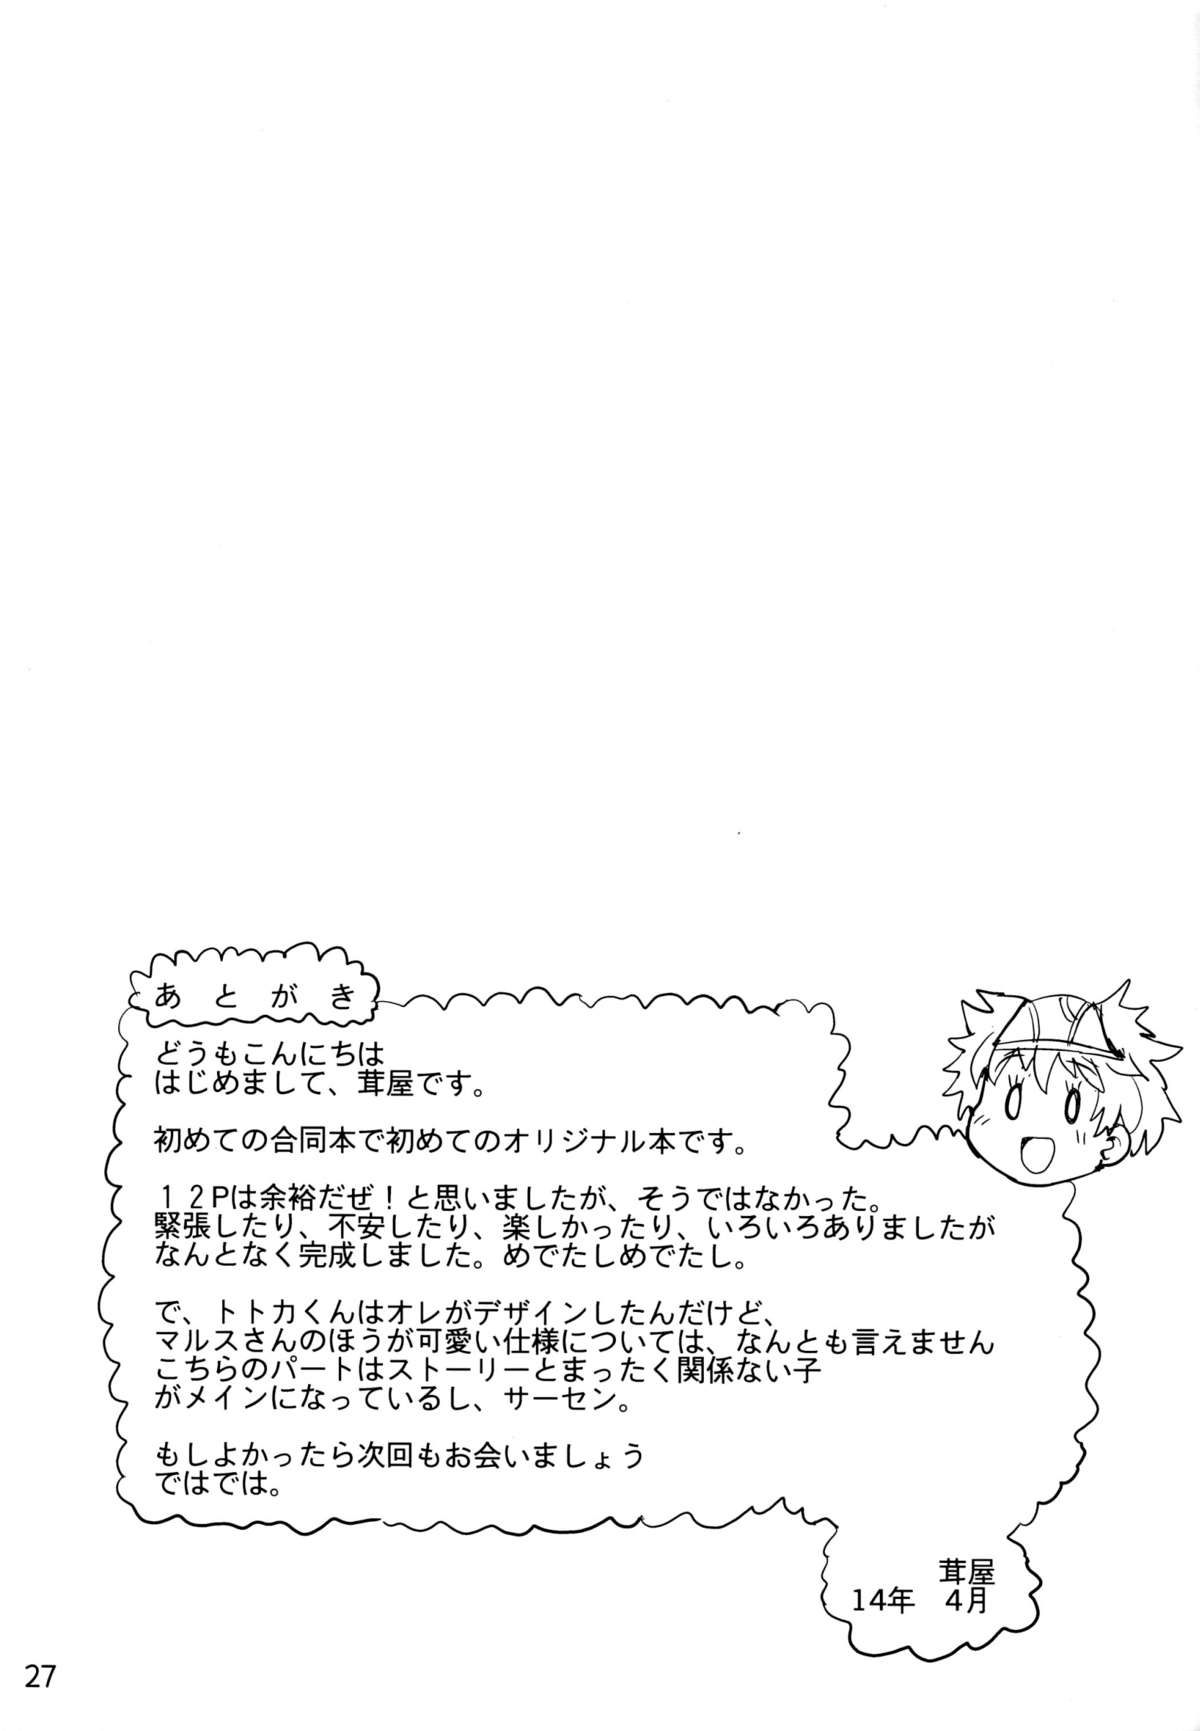 あとがき
どうもこんにちは
はじめまして、茸屋です。
初めての合同本で初めてのオリジナル本です。
１２Pは余裕だぜ！と思いましたが、そうではなかった。
緊張したり、不安したり、楽しかったり、いろいろありましたが
なんとなく完成しました。めでたしめでたし。
で、トトカくんはオレがデザインしたんだけど、
マルスさんのほうが可愛い仕様については、なんとも言えません
こちらのパートはストーリーとまったく関係ない子
がメインになっているし、サーセン。
もしよかったら次回もお会いましょう
ではでは。
茸屋
14年　4月
27